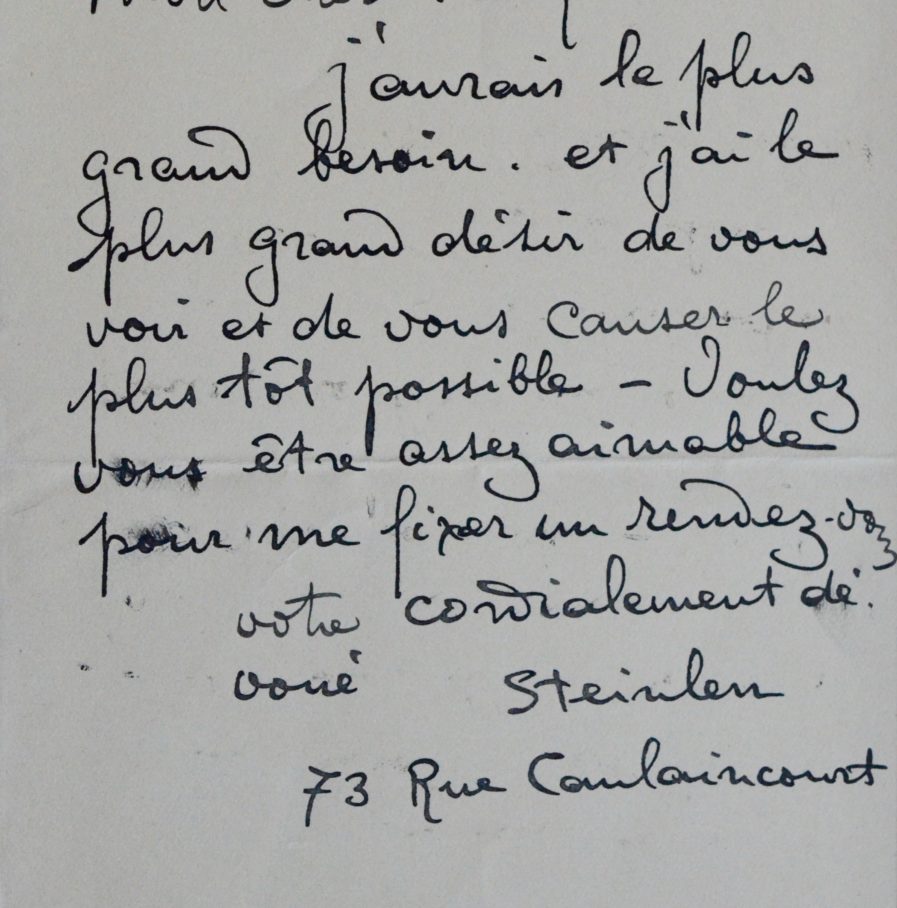 Mon cher
j'aurais le plus
grand besoin. et j'ai le
plus grand désir de vous
voir et de vous causer le
plus tôt possible – Voulez
vous être assez aimable
pour me fixer un rendez-vous
votre cordialement dé.
voué Steinlen
73 Rue Caulaincourt